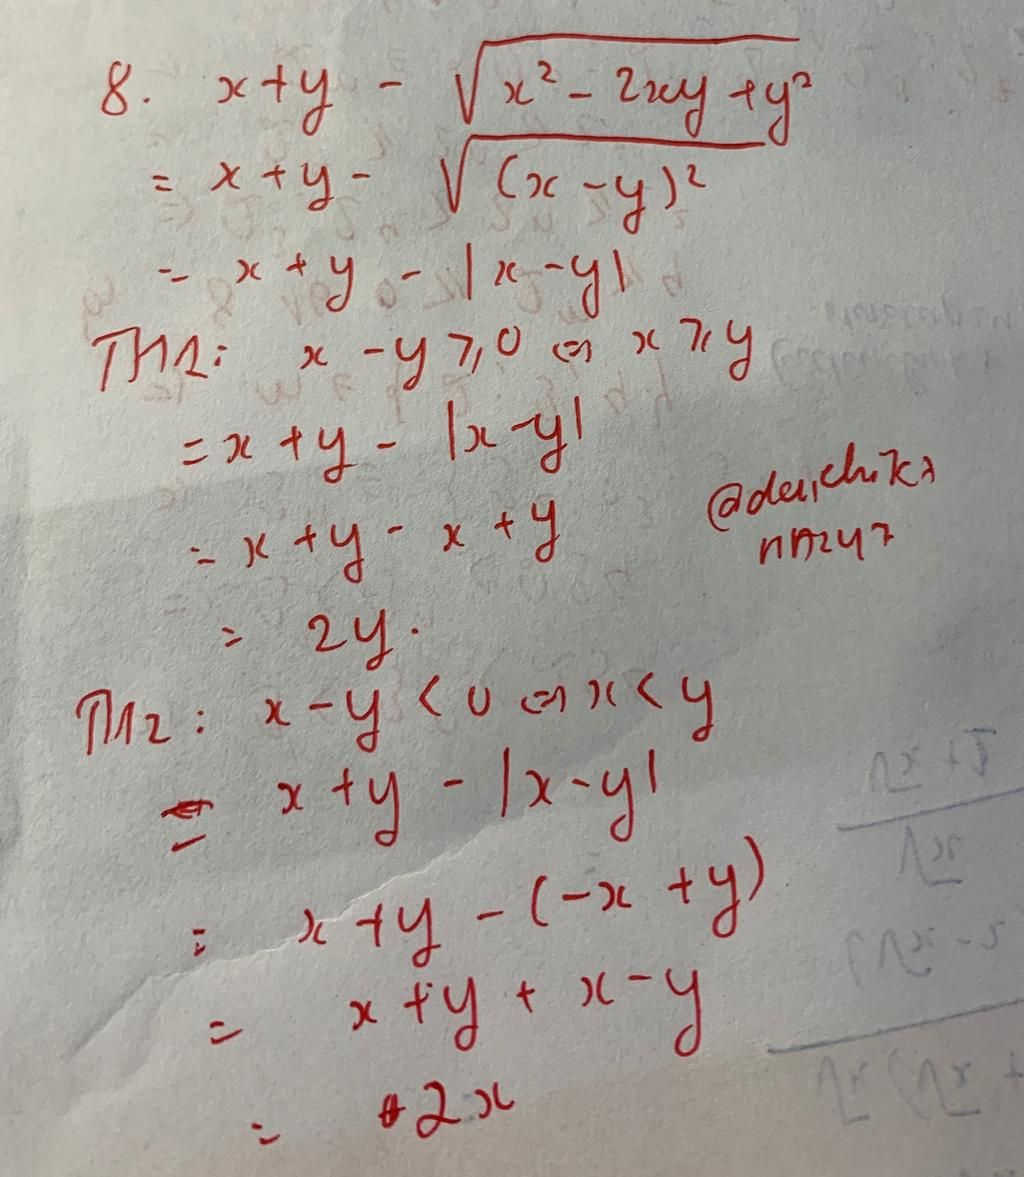 8. x + y - √x² - 2xy + y²
= x + y - √(x - y)²
= x + y - |x - y|
TH1: x - y ⩾ 0 ⇔ x ⩾ y
= x + y - |x - y|
= x + y - x + y
= 2y.
TH2: x - y < 0 ⇔ x < y
= x + y - |x - y|
= x + y - (-x + y)
= x + y + x - y
= 2x